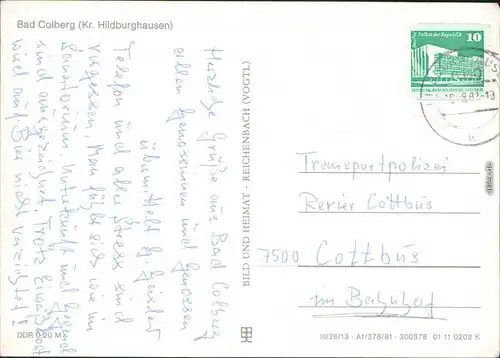 Bad Colberg (Kr. Hildburghausen)
Herzliche Grüße aus Bad Colberg
allen Genossinnen und Genossen
übermittelt
Telefon und aller Stress sind
vergessen. Man fühlt sich wie im
Sanatorium. Unterkunft und
sind ausgezeichnet. Trotz
wird auf Bier nicht verzichtet!
BILD UND HEIMAT · REICHENBACH (VOGTL)
10
Palast der Republik
Transportpolizei
Revier Cottbus
7500 Cottbus
im Bahnhof
DDR 0,20 M
III/26/13 · A1/378/81 · 300378 01 11 0202 K